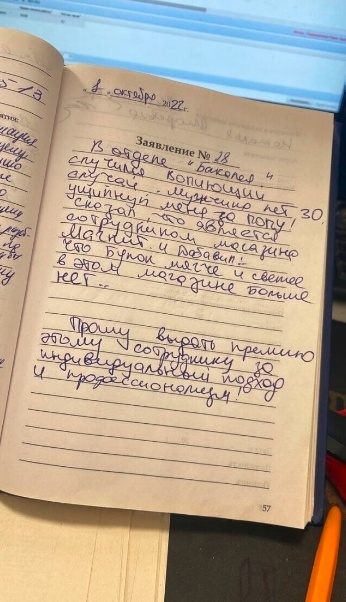 "8" октября 2022г.
Заявление № 28
В отделе "Бакалея"
случился вопиющий
случай. Мужчина лет 30
ущипнул меня за попу!
Сказал что является
сотрудником магазина
Магнит и добавил:-
что булок мягче и свежее
в этом магазине больше
нет...
Прошу выдать премию
этому сотруднику за
индивидуальный подход
и профессионализм!
57